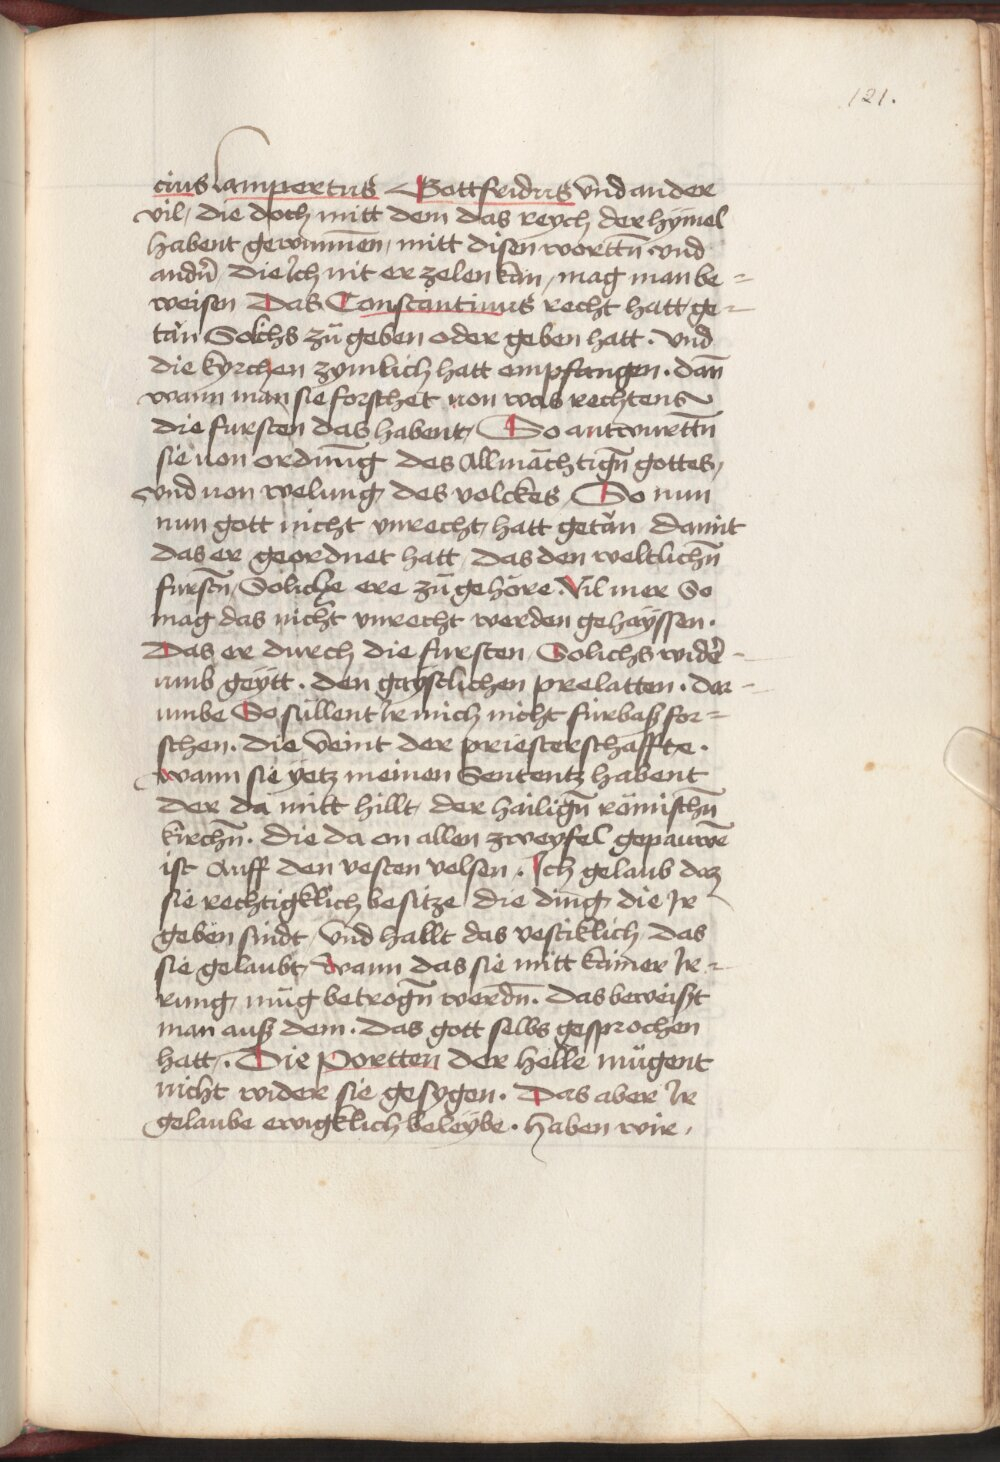 121.
cius lampertus Gottfridus vnd ander
vil / die doch mitt dem das reych der hymel
habent gewunnen / mitt disen wortñ vnd
andñ die Ich nit er zelen kan / mag man be=
weisen Das Constantinus recht hatt ge=
tän Solchs zü geben oder geben hatt . vnd
die kyrchen zymlich hatt empfangen . dañ
wann man sie forschet uon was rechtens
die fursten das habent / So antwurttñ
sie uon ordnũg des Allmächtigñ gottes /
vnd uon welung des volckes / So nun
nun gott nicht vnrecht hatt getän damit
das er geordnet hatt / das den weltlichñ
furstñ / Soliche ere zü gehöre . Vil mer So
mag das nicht vnrecht werden gehayssen .
Das er durch die fursten Solichs wider
umb geytt . den gaystlichen prelatten . dar=
umbe So süllent Ir mich nicht fürbaß for=
schen . die veint der priesterschaffte .
wann sie yetz meinen Sententz habent
der da mitt hillt / der hailigñ römischñ
kirchñ . die da on allen zweyfel gepauwẽ
ist Auff den vesten velsen . Ich gelaub daz
sie rechtigklich besitze die ding die Ir
geben sindt / vnd hallt das vestiklich das
sie gelaubt / wann das sie mitt kainer Ir=
rung müg betrogñ werdñ . das beweißt
man auß dem . das gott selbs gesprochen
hatt . Die portten der helle mügent
nicht wider sie gesygen . Das aber Ir
gelaube ewigklich beleybe . haben wir